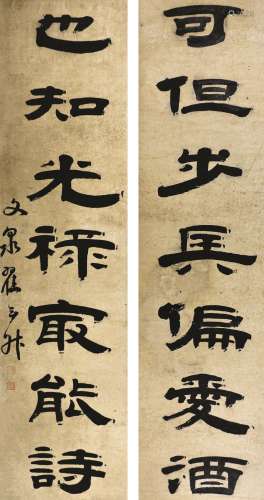 可但步兵偏愛酒
也知光禄㝡能詩
文泉翟云升